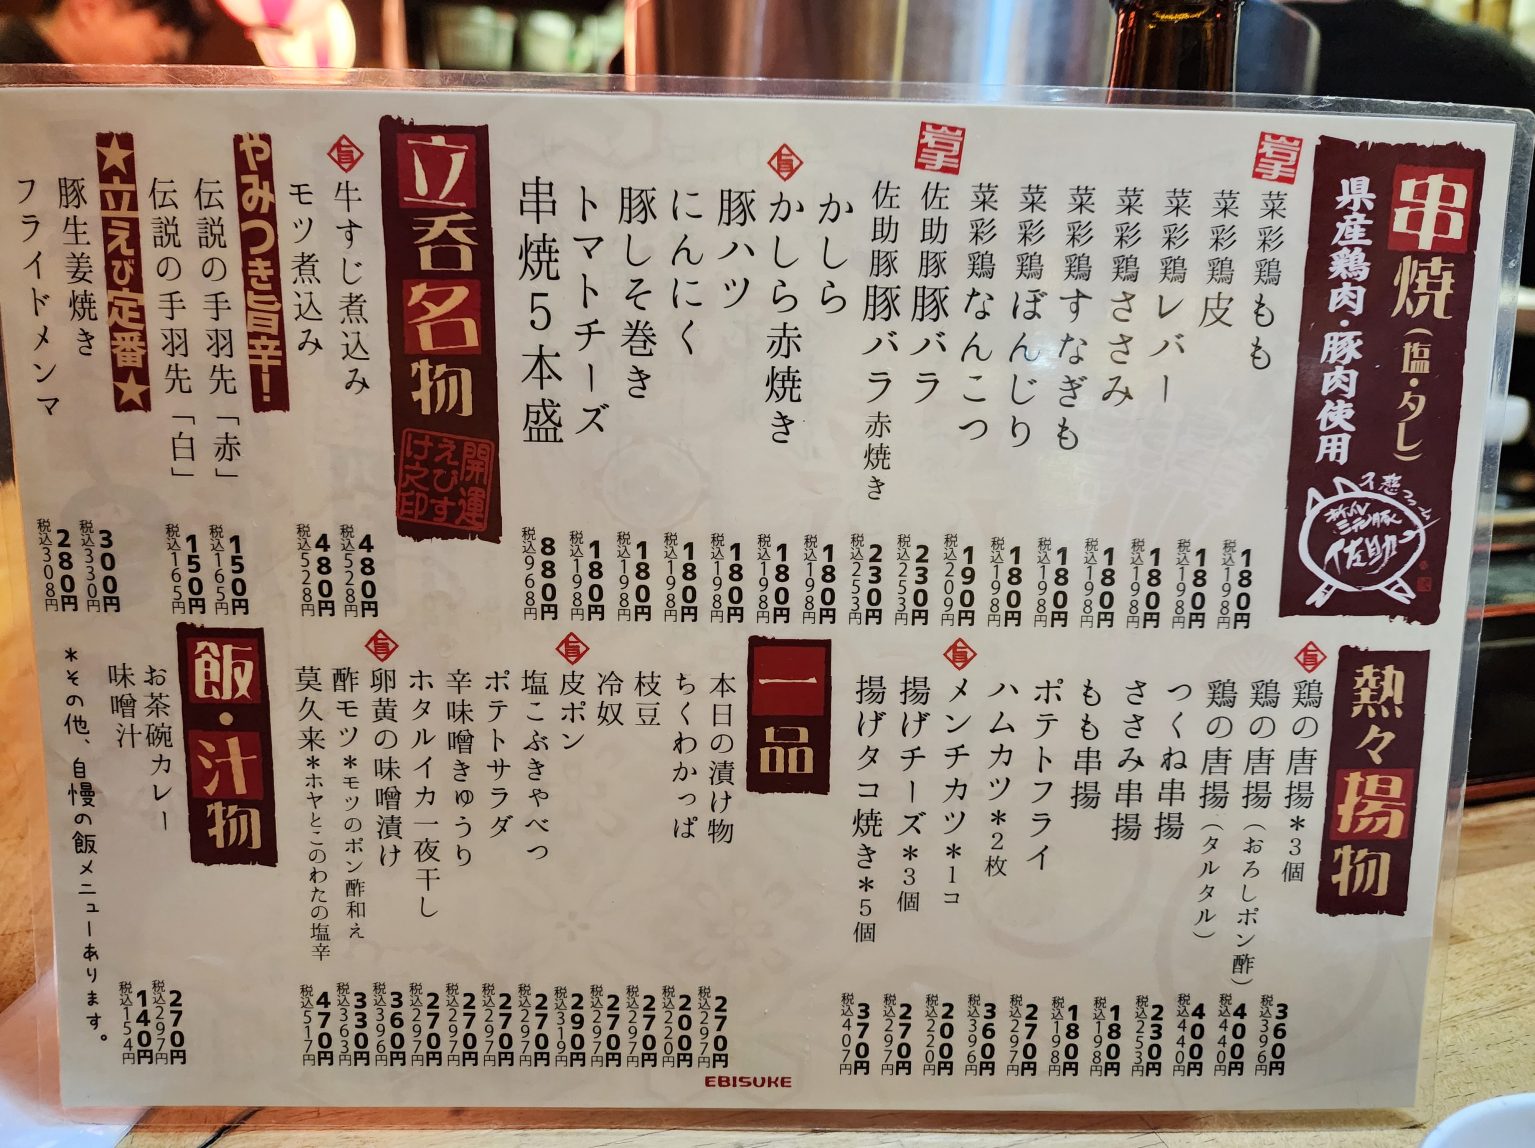 串焼（塩・タレ）
県産鶏肉・豚肉使用
佐助
岩手
菜彩鶏もも
180円
税込198円
菜彩鶏皮
180円
税込198円
菜彩鶏レバー
180円
税込198円
菜彩鶏ささみ
180円
税込198円
菜彩鶏すなぎも
180円
税込198円
菜彩鶏ぼんじり
180円
税込198円
菜彩鶏なんこつ
190円
税込209円
岩手
佐助豚豚バラ
230円
税込253円
佐助豚豚バラ赤焼き
230円
税込253円
かしら
180円
税込198円
旨
かしら赤焼き
180円
税込198円
豚ハツ
180円
税込198円
にんにく
180円
税込198円
豚しそ巻き
180円
税込198円
トマトチーズ
180円
税込198円
串焼5本盛
880円
税込968円
立呑名物
開運えびすけ之印
旨
牛すじ煮込み
480円
税込528円
モツ煮込み
480円
税込528円
やみつき旨辛！
伝説の手羽先「赤」
150円
税込165円
伝説の手羽先「白」
150円
税込165円
★立えび定番★
豚生姜焼き
300円
税込330円
フライドメンマ
280円
税込308円
熱々揚物
旨
鶏の唐揚＊3個
360円
税込396円
鶏の唐揚（おろしポン酢）
400円
税込440円
鶏の唐揚（タルタル）
400円
税込440円
つくね串揚
230円
税込253円
ささみ串揚
180円
税込198円
もも串揚
180円
税込198円
ポテトフライ
270円
税込297円
ハムカツ＊2枚
360円
税込396円
旨
メンチカツ＊1コ
200円
税込220円
揚げチーズ＊3個
270円
税込297円
揚げタコ焼き＊5個
370円
税込407円
一品
本日の漬け物
270円
税込297円
ちくわかっぱ
200円
税込220円
枝豆
270円
税込297円
冷奴
270円
税込297円
旨
皮ポン
290円
税込319円
塩こぶきゃべつ
270円
税込297円
ポテトサラダ
270円
税込297円
辛味噌きゅうり
270円
税込297円
ホタルイカ一夜干し
270円
税込297円
旨
卵黄の味噌漬け
360円
税込396円
酢モツ＊モツのポン酢和え
330円
税込363円
莫久来＊ホヤとこのわたの塩辛
470円
税込517円
飯・汁物
お茶碗カレー
270円
税込297円
味噌汁
140円
税込154円
＊その他、自慢の飯メニューあります。
EBISUKE